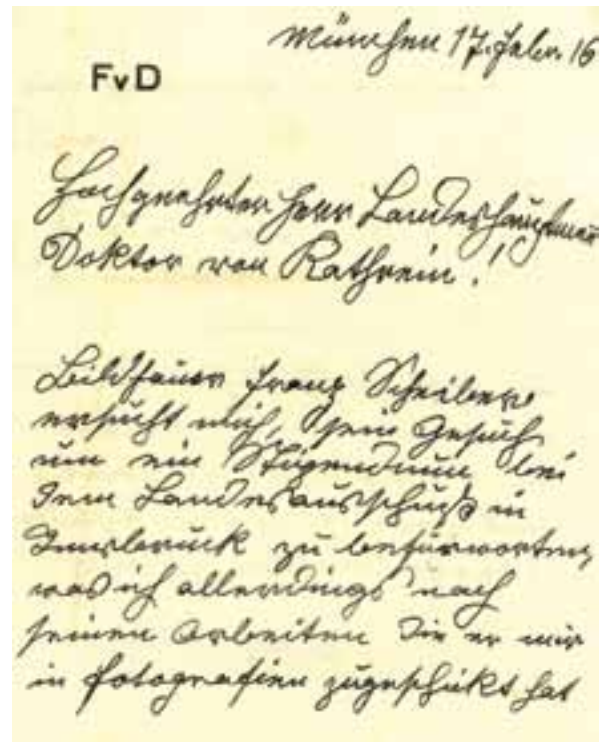 München 17. Febr. 16
FvD
Hochgeehrter Herr Landeshauptmann
Doktor von Kathrein!
Bildhauer Franz Scheiber
ersucht mich, sein Gesuch
um ein Stipendium bei
dem Landesausschuß in
Innsbruck zu befürworten,
was ich allerdings nach
seinen Arbeiten die er mir
in Fotografien zugeschickt hat